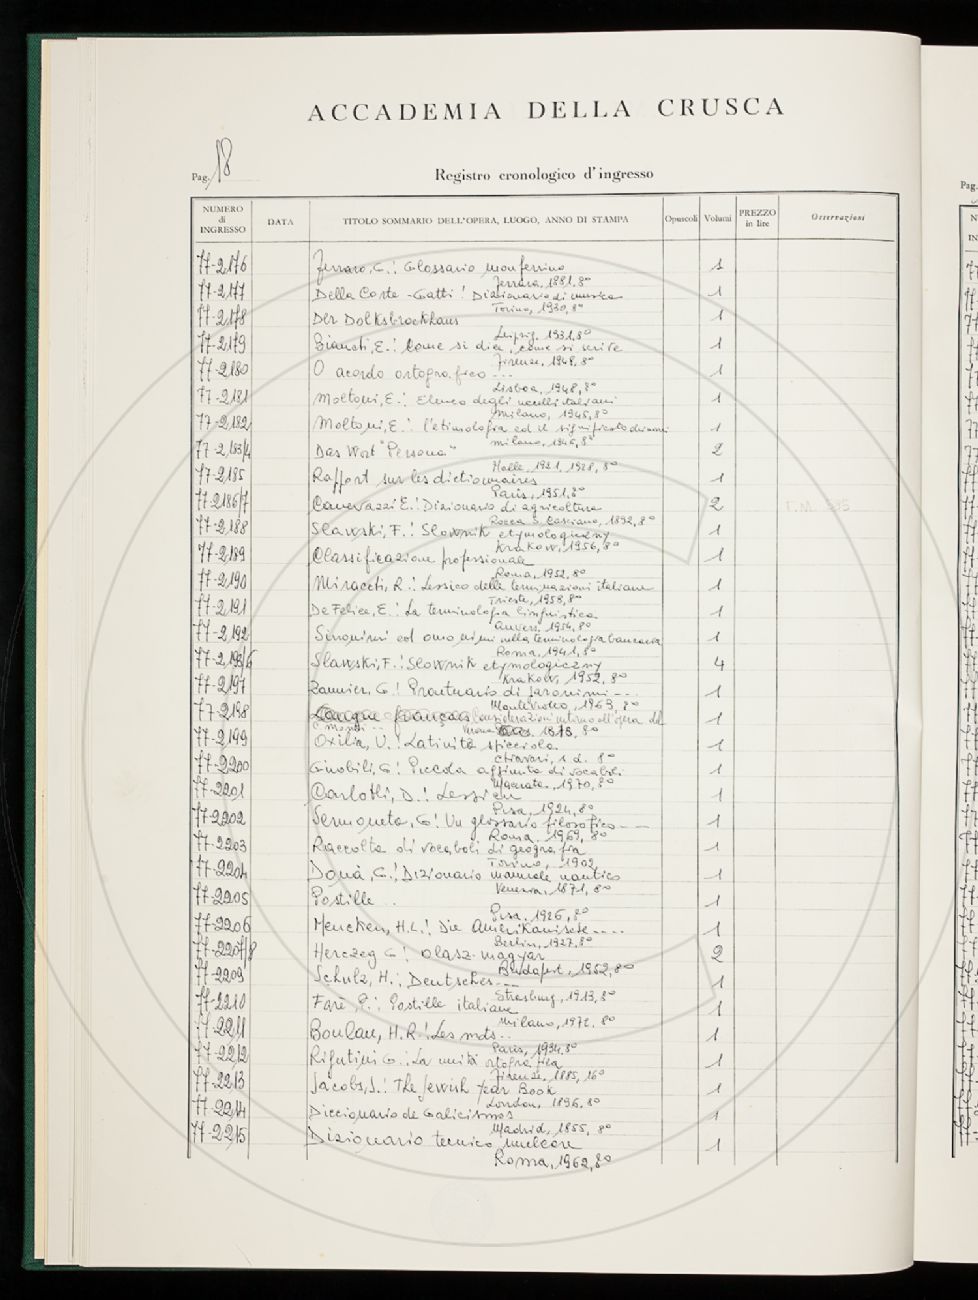 ACCADEMIA DELLA CRUSCA
Pag. 18
Registro cronologico d'ingresso
NUMERO di INGRESSO DATA TITOLO SOMMARIO DELL'OPERA, LUOGO, ANNO DI STAMPA Opuscoli Volumi PREZZO in lire Osservazioni
77-2176 Ferraro, G.: Glossario monferrino 1
Ferrara, 1881, 8°
77-2177 Della Corte - Gatti: Dizionario di musica 1
Torino, 1930, 8°
77-2178 Der Volksbrockhaus 1
Leipzig, 1931, 8°
77-2179 Bianchi, E.: Come si dice, come si scrive 1
Firenze, 1948, 8°
77-2180 O acordo ortografico --- 1
Lisboa, 1948, 8°
77-2181 Moltoni, E.: Elenco degli uccelli italiani 1
Milano, 1945, 8°
77-2182 Moltoni, E.: L'etimologia ed il significato dei nomi 1
Milano, 1946, 8°
77-2183/4 Das Wort "Persona" 2
Halle, 1921, 1928, 8°
77-2185 Rapport sur les dictionnaires 1
Paris, 1951, 8°
77-2186/7 Canevazzi E.: Dizionario di agricoltura 2
Rocca S. Casciano, 1892, 8°
77-2188 Slawski, F.: Slownik etymologiczny 1
Krakow, 1956, 8°
77-2189 Classificazione professionale 1
Roma, 1952, 8°
77-2190 Miracchi, R.: Lessico delle terminazioni italiane 1
Trieste, 1958, 8°
77-2191 De Felice, E.: La terminologia linguistica 1
Anvers, 1954, 8°
77-2192 Sinonimi ed omonimi nella terminologia bancaria 1
Roma, 1941, 8°
77-2193/6 Slawski, F.: Slownik etymologiczny 4
Krakow, 1952, 8°
77-2197 Zannier, G.: Prontuario di paronimi --- 1
Montevideo, 1963, 8°
77-2198 Considerazioni intorno all'opera del 1
C. Monti -- Verona 1873, 8°
77-2199 Oxilia, U.: Latinità spicciola 1
Chiavari, s.d. 8°
77-2200 Ginobili, G.: Piccola aggiunta di vocaboli 1
Macerata, 1970, 8°
77-2201 Carlotti, D.: Lessico 1
Pisa, 1924, 8°
77-2202 Sermoneta, G.: Un glossario filosofico --- 1
Roma, 1969, 8°
77-2203 Raccolta di vocaboli di geografia 1
Torino, 1902
77-2204 Donà, G.: Dizionario manuale nautico 1
Venezia, 1871, 8°
77-2205 Postille .. 1
Pisa, 1926, 8°
77-2206 Mencken, H.L.: Die Amerikanische .... 1
Berlin, 1927, 8°
77-2207/8 Herczeg G.: Olasz-magyar 2
Budapest, 1952, 8°
77-2209 Schulz, H.: Deutsches --- 1
Strasburg, 1913, 8°
77-2210 Farè, P.: Postille italiane 1
Milano, 1972, 8°
77-2211 Boulan, H.R.: Les mots.. 1
Paris, 1934, 8°
77-2212 Rigutini G.: La unità ortografica 1
Firenze, 1885, 16°
77-2213 Jacobs, J.: The Jewish Year Book 1
London, 1896, 8°
77-2214 Diccionario de Galicismos 1
Madrid, 1855, 8°
77-2215 Dizionario tecnico nucleare 1
Roma, 1962, 8°